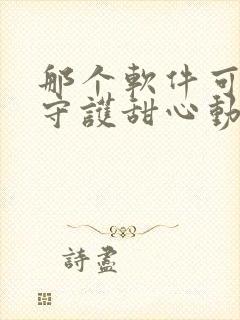 那个軟件可
守護甜心動
詩盡